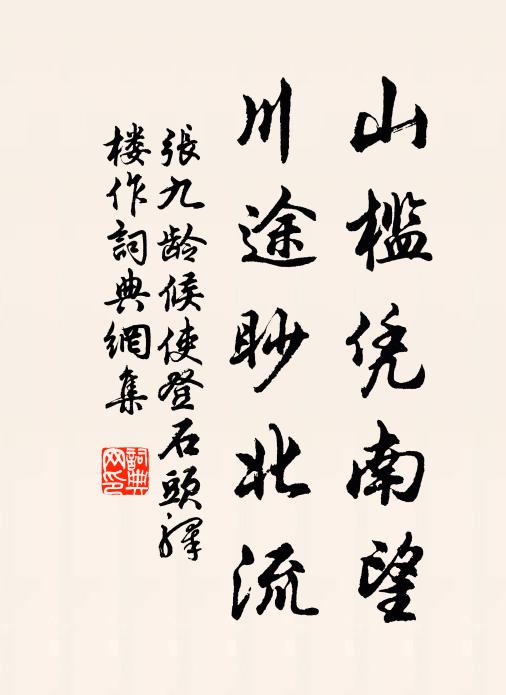 山槛凭南望
川途眇北流
張九龄候使登石頭驛
楼作詞典網集
詞典
网印